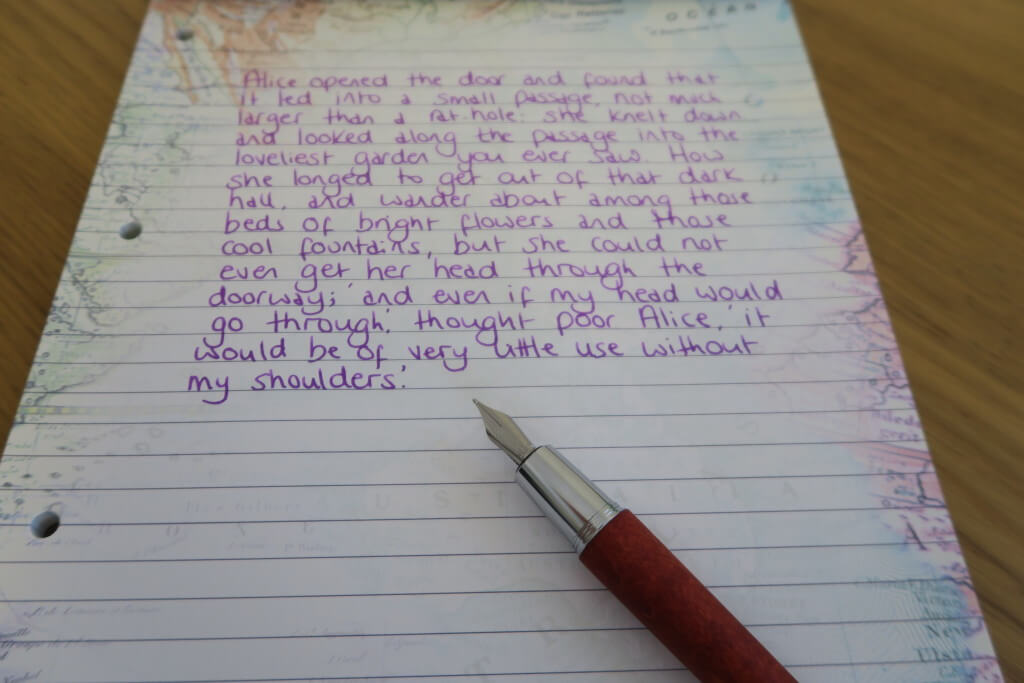 OCEAN
Alice opened the door and found that
it led into a small passage, not much
larger than a rat-hole: she knelt down
and looked along the passage into the
loveliest garden you ever saw. How
she longed to get out of that dark
hall, and wander about among those
beds of bright flowers and those
cool fountains, but she could not
even get her head through the
doorway; 'and even if my head would
go through,' thought poor Alice, 'it
would be of very little use without
my shoulders.'
AUSTRALIA
A
New